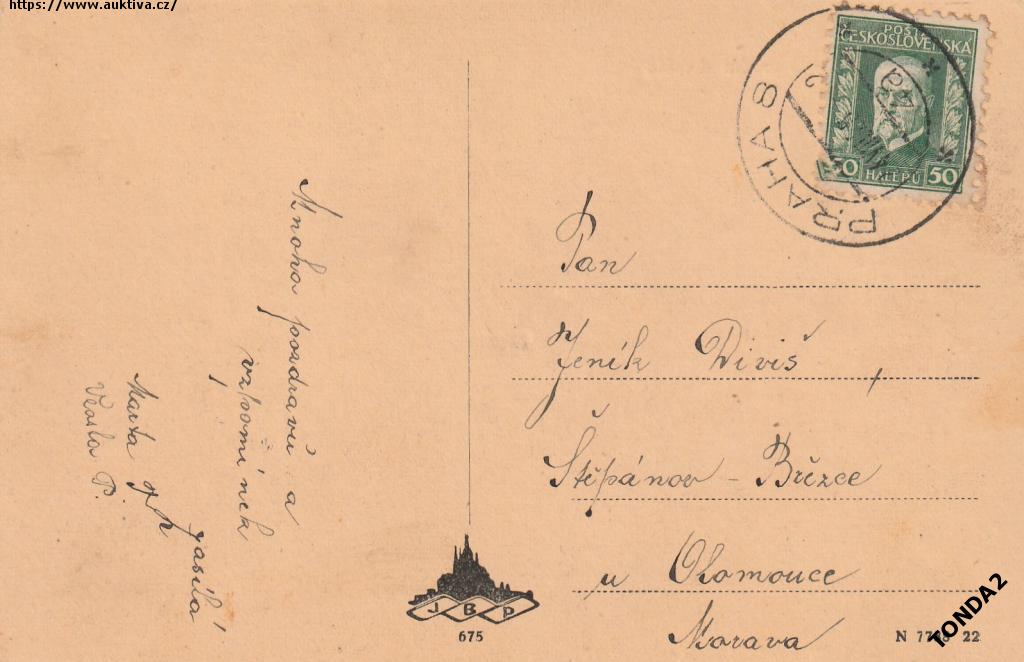 https://www.auktiva.cz/
POŠTA
ČESKOSLOVENSKÁ
50 HALÉŘŮ 50
PRAHA 8
Mnoho pozdravů a
vzpomínek
zasílá
Marta
Vlasta P.
Pan
Jeník Diviš,
Štěpánov - Březce
u Olomouce
Morava
J B P
675
TONDA2